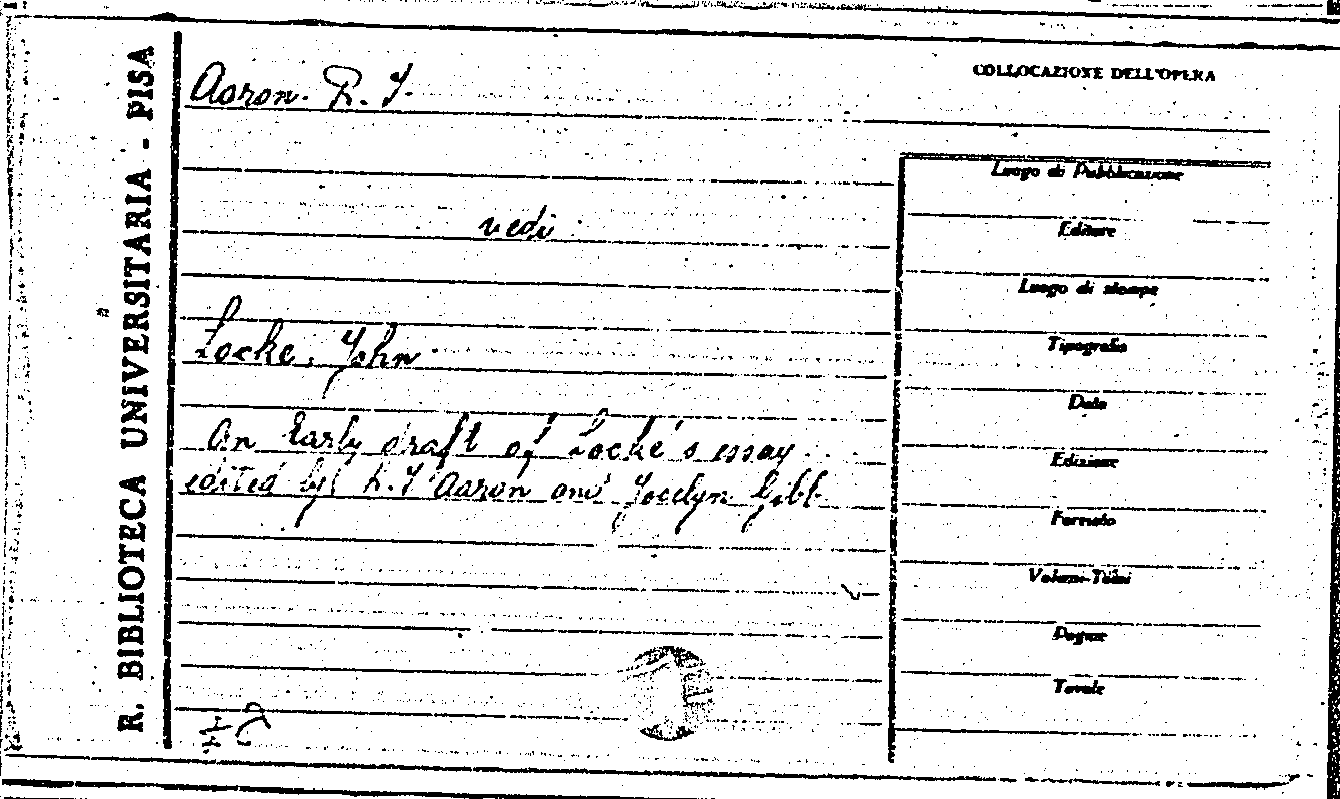 R. BIBLIOTECA UNIVERSITARIA - PISA
Aaron. R. I.
COLLOCAZIONE DELL'OPERA
vedi
Locke, John
An Early draft of Locke's essay
edited by R. I Aaron and Jocelyn Gibb
Luogo di Pubblicazione
Editore
Luogo di stampa
Tipografia
Data
Edizione
Formato
Volumi-Tomi
Pagine
Tavole